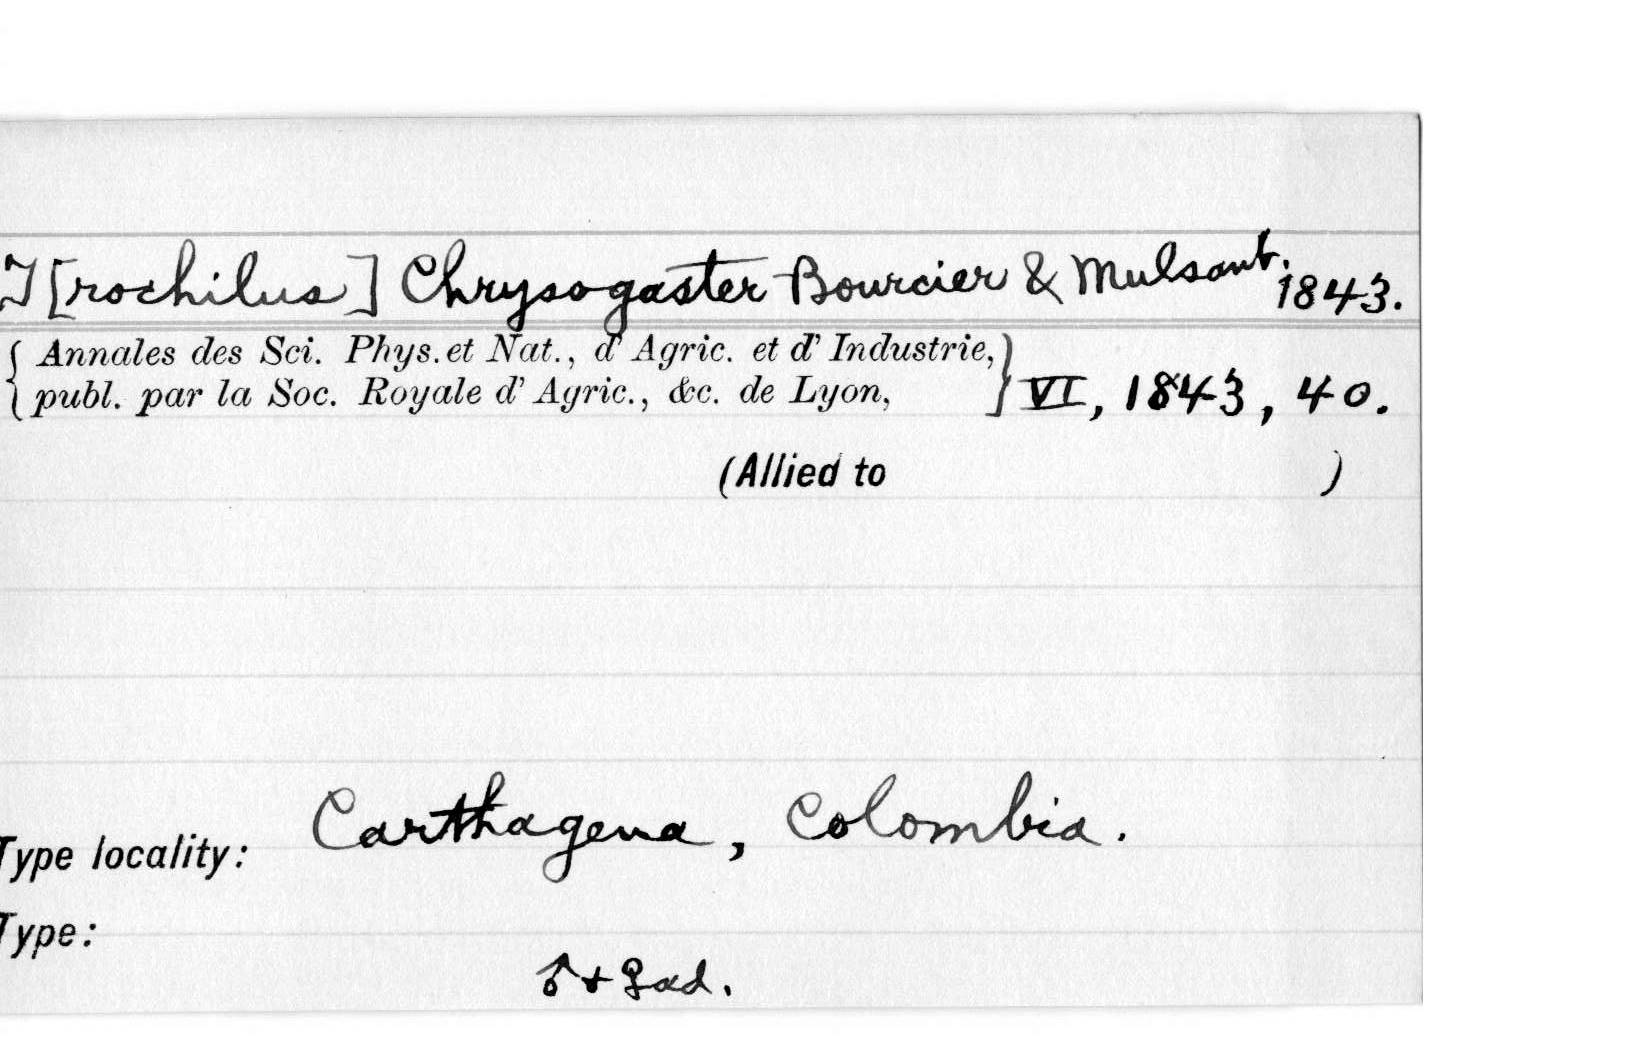 T[rochilus] Chrysogaster Bourcier & Mulsant. 1843.
{ Annales des Sci. Phys. et Nat., d' Agric. et d' Industrie, }
{ publ. par la Soc. Royale d' Agric., &c. de Lyon, } VI, 1843, 40.
(Allied to )
Type locality: Carthagena, Colombia.
Type:
♂ + ♀ ad.